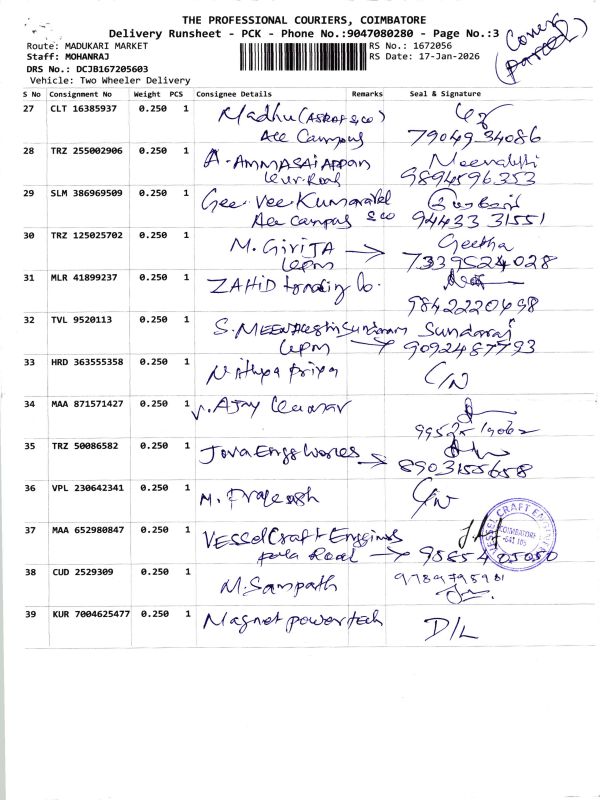 THE PROFESSIONAL COURIERS, COIMBATORE
Delivery Runsheet - PCK - Phone No.:9047080280 - Page No.:3
Route: MADUKARI MARKET
RS No.: 1672056
Staff: MOHANRAJ
RS Date: 17-Jan-2026
DRS No.: DCJB167205603
Vehicle: Two Wheeler Delivery
(Cover Parcel)
S No Consignment No Weight PCS Consignee Details Remarks Seal & Signature
27 CLT 16385937 0.250 1 Madhu (ASRAF & co)
Ace Campus 7904934086
28 TRZ 255002906 0.250 1 A. AMMASAI APPAN Meenakshi
Kur. Road 9894596353
29 SLM 386969509 0.250 1 Gee Vee Kumaravel
Ace campus & co 94433 31551
30 TRZ 125025702 0.250 1 M. GiRiJA Geetha
7339524028
31 MLR 41899237 0.250 1 ZAHID trading Co.
9842220698
32 TVL 9520113 0.250 1 S. MEENAkshi Sundaram Sundaraj
9092487793
33 HRD 363555358 0.250 1 Nithya Priya C/N
34 MAA 871571427 0.250 1 V. AJay Kumar
35 TRZ 50086582 0.250 1 Java Engg Works
8903155658
36 VPL 230642341 0.250 1 M. Prakash C/N
37 MAA 652980847 0.250 1 VESSel Craft Enggines
Road 95854 05050
VESSEL CRAFT
COIMBATORE
-641 105
38 CUD 2529309 0.250 1 M. Sampath 9789795981
39 KUR 7004625477 0.250 1 Magnet power tech D/L